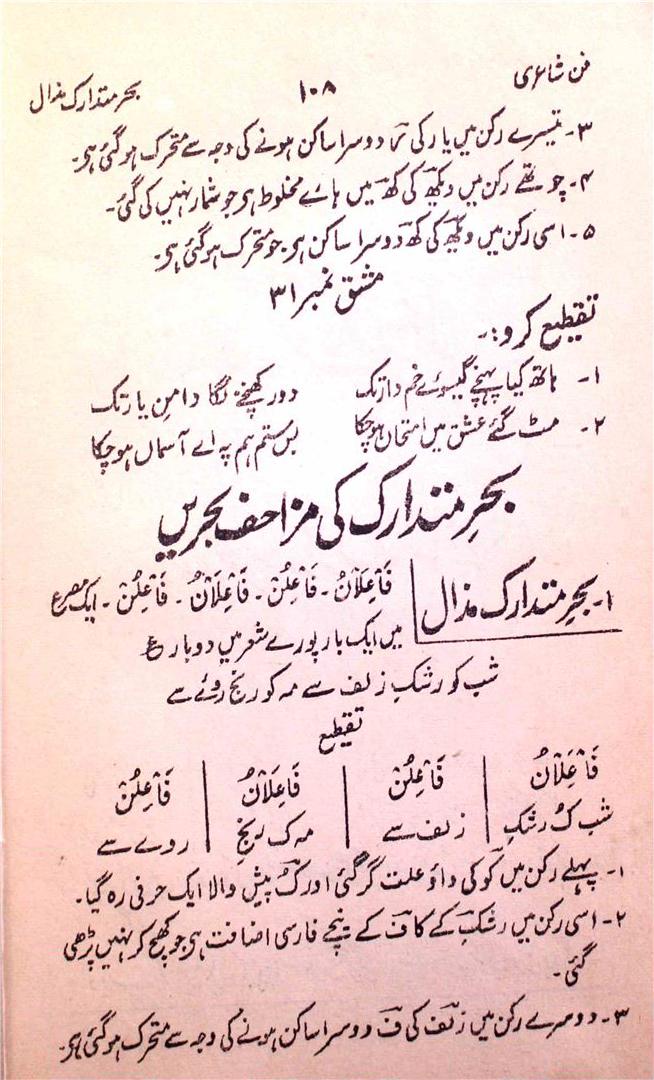 فن شاعری ۱۰۸ بحر متدارک مذال
۳۔ تیسرے رکن میں یار کی ر دوسرا ساکن ہونے کی وجہ سے متحرک ہو گئی ہی۔
۴۔ چوتھے رکن میں دیکھ کی کھ میں ہائے مخلوط ہی جو شمار نہیں کی گئی۔
۵۔ اسی رکن میں دیکھ کی کھ دوسرا ساکن ہی جو متحرک ہو گئی ہی۔
مشق نمبر ۳۱
تقطیع کرو:۔
۱۔ ہاتھ کیا پہنچے گیسوئے خم دار تک دور کھنچنے لگا دامنِ یار تک
۲۔ مٹ گئے عشق میں امتحاں ہو چکا بس ستم ہم پہ اے آسماں ہو چکا
بحرِ متدارک کی مزاحف بحریں
۱۔ بحرِ متدارک مذال فَاْعِلَاْنُ۔ فَاْعِلُنْ۔ فَاْعِلَاْنُ۔ فَاْعِلُنْ۔ ایک مصرع
میں ایک بار پورے شعر میں دو بار ع
شب کو رشکِ زلف سے مہ کو رنجِ روئے سے
تقطیع
فَاْعِلَاْنُ فَاْعِلُنْ فَاْعِلَاْنُ فَاْعِلُنْ
شب کُ رشکِ زلف سے مہ ک رنجِ روے سے
۱۔ پہلے رکن میں کو کی واؤ علت گر گئی اور کُ پیش والا ایک حرفی رہ گیا۔
۲۔ اسی رکن میں رشک کے کاف کے نیچے فارسی اضافت ہی جو کھچ کر نہیں پڑھی
گئی۔
۳۔ دوسرے رکن میں زلف کی ف دوسرا ساکن ہونے کی وجہ سے متحرک ہو گئی ہی۔